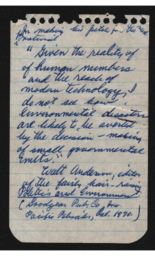 In making his pitch for the
"Given the reality of
of human numbers
and the reach of
modern technology, I
do not see how
environmental disasters
are likely to be averted
by the decision-making
of small governmental
units."
Walt Anderson, editor
of the
Politics and Environment
(Goodyear Pub. Co., Inc.
Pacific Palisades, Cal. 1970)